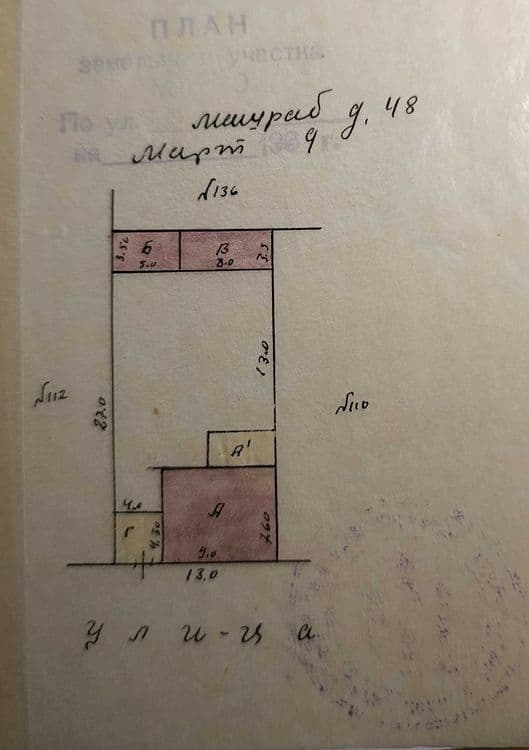 ПЛАН
земельного участка
По ул. Машраб д. 48
на Март 9 г.
№136
3,50 Б В 3.5
5.0 8.0
13.0
№112
27.0
№110
А'
4.0
Г 4,30 А 7,60
9.0
13,0
У л и - ц а